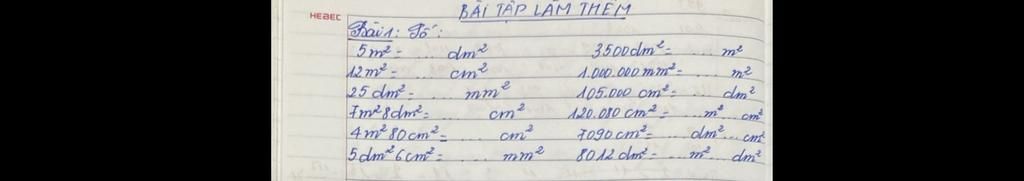 HEBEC
BÀI TẬP LÀM THÊM
Bài 1: Số:
5m² = ... dm² 3500dm² = ... m²
12m² = ... cm² 1.000.000mm² = ... m²
25dm² = ... mm² 105.000 cm² = ... dm²
7m² 8dm² = ... cm² 120.080 cm² = ... m² ... cm²
4m² 80cm² = ... cm² 7090cm² = ... dm² ... cm²
5dm² 6cm² = ... mm² 8012dm² = ... m² ... dm²